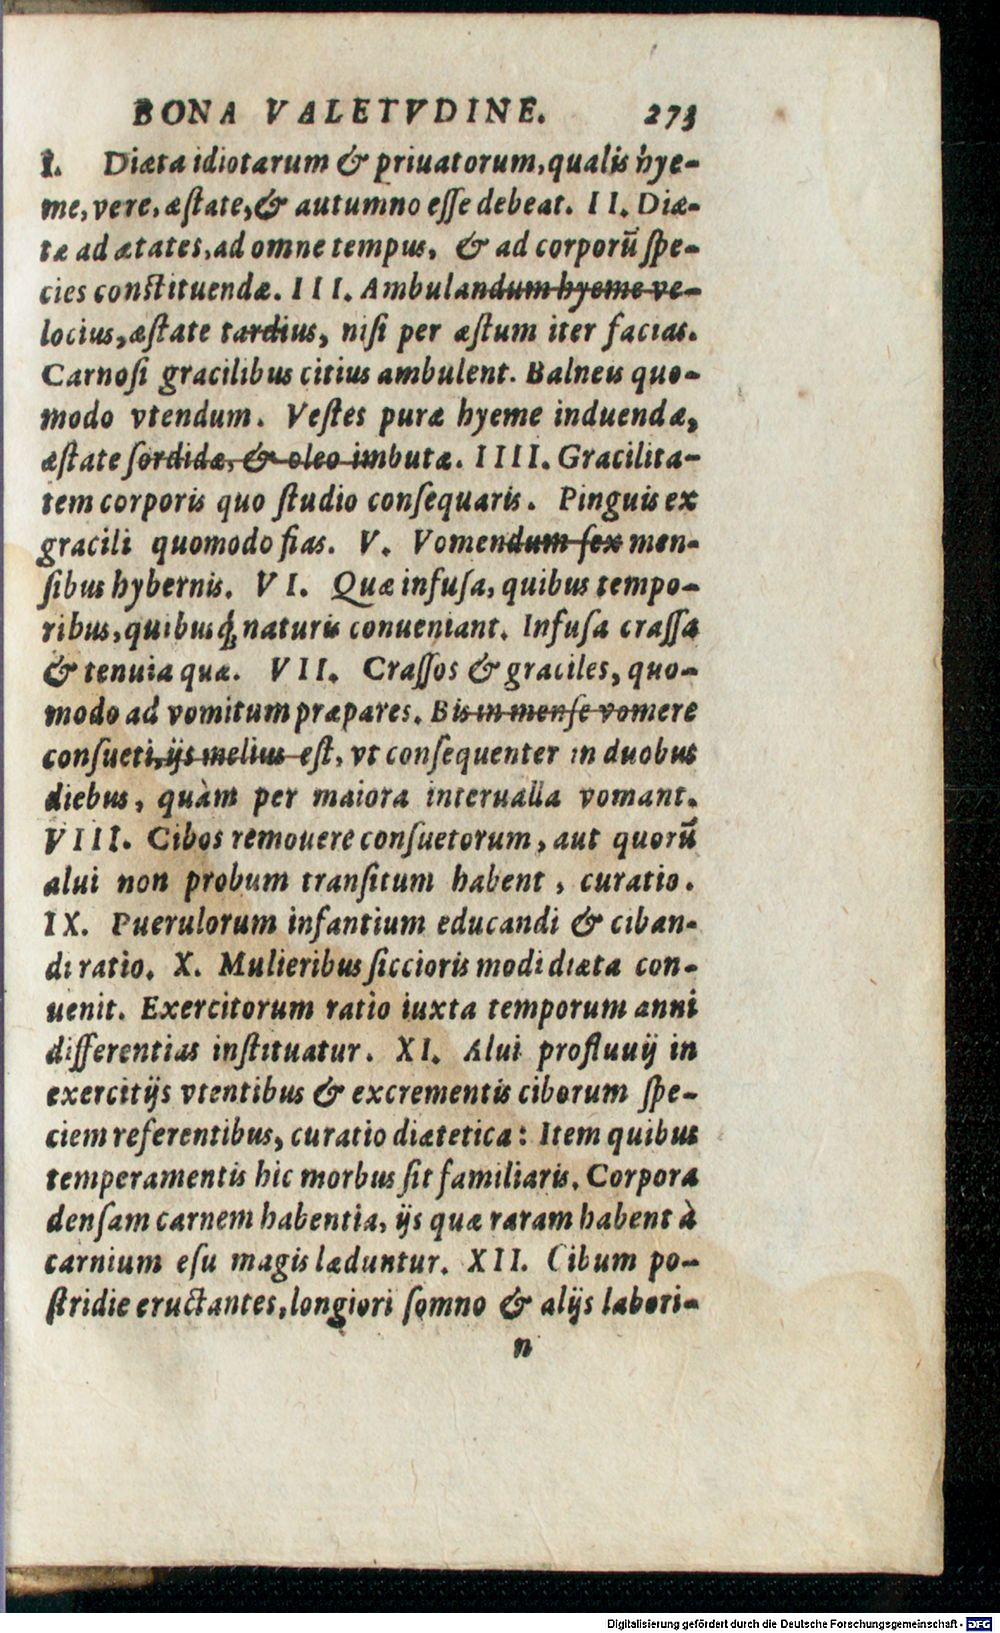 BONA VALETVDINE. 273
I. Diæta idiotarum & priuatorum, qualis hye-
me, vere, æſtate, & autumno eſſe debeat. II. Diæ-
tæ ad ætates, ad omne tempus, & ad corporũ ſpe-
cies conſtituendæ. III. Ambulandum hyeme ve-
locius, æſtate tardius, niſi per æſtum iter facias.
Carnoſi gracilibus citius ambulent. Balneis quo-
modo vtendum. Veſtes puræ hyeme induendæ,
æſtate ſordidæ, & oleo imbutæ. IIII. Gracilita-
tem corporis quo ſtudio conſequaris. Pinguis ex
gracili quomodo fias. V. Vomendum ſex men-
ſibus hybernis. VI. Quæ infuſa, quibus tempo-
ribus, quibusq́; naturis conueniant. Infuſa craſſa
& tenuia quæ. VII. Craſſos & graciles, quo-
modo ad vomitum præpares. Bis in menſe vomere
conſueti, ijs melius eſt, vt conſequenter in duobus
diebus, quàm per maiora interualla vomant.
VIII. Cibos remouere conſuetorum, aut quorũ
alui non probum tranſitum habent, curatio.
IX. Puerulorum infantium educandi & ciban-
di ratio. X. Mulieribus ſiccioris modi diæta con-
uenit. Exercitorum ratio iuxta temporum anni
differentias inſtituatur. XI. Alui profluuij in
exercitijs vtentibus & excrementis ciborum ſpe-
ciem referentibus, curatio diætetica: Item quibus
temperamentis hic morbus ſit familiaris. Corpora
denſam carnem habentia, ijs quæ raram habent à
carnium eſu magis læduntur. XII. Cibum po-
ſtridie eructantes, longiori ſomno & alijs labori-
n
Digitalisierung gefördert durch die Deutsche Forschungsgemeinschaft - DFG